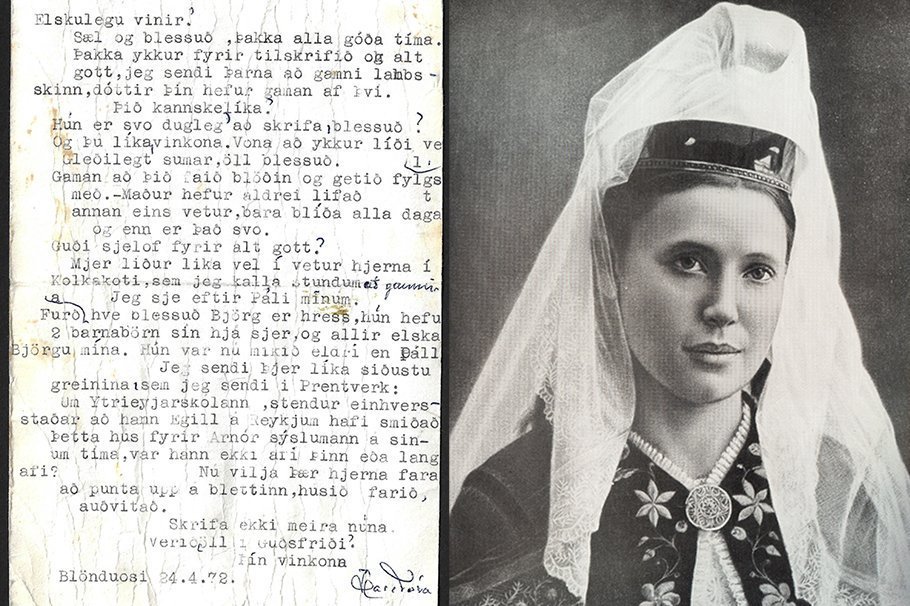 Elskulegu vinir!
Sæl og blessuð ,þakka alla góða tíma.
Þakka ykkur fyrir tilskrifið og alt
gott,jeg sendi þarna að gamni lambs-
skinn,dóttir þín hefur gaman af því.
Þið kannskelíka?
Hún er svo dugleg að skrifa,blessuð ?
Og þú líka,vinkona.Vona að ykkur líði ve
Gleðilegt sumar,öll blessuð. (l.
Gaman að þið faið blöðin og getið fylgs
með.-Maður hefur aldrei lifað t
annan eins vetur,bara blíða alla daga
og enn er það svo.
Guði sjelof fyrir alt gott?
Mjer liður lika vel í vetur hjerna í
Kolkakoti,sem jeg kalla stundum að gamni
a Jeg sje eftir Páli mínum.
Furð,hve blessuð Björg er hress,hún hefu
2 barnabörn sín hjá sjer,og allir elska
Björgu mína. Hún var nú mikið eldri en Páll
Jeg sendi þjer líka siðustu
greinina,sem jeg sendi i Prentverk:
Um Ytrieyjarskólann ,stendur einhvers-
staðar að hann Egill á Reykjum hafi smiðað
Þetta hús fyrir Arnór sýslumann a sin-
um tíma,var hann ekki afi þinn eða lang
afi? Nú vilja þær hjerna fara
að punta upp a blettinn,húsið farið,
auðvitað.
Skrifa ekki meira núna.
Veriðöll i Guðsfriði?
Þín vinkona
Blönduosi 24.4.72.